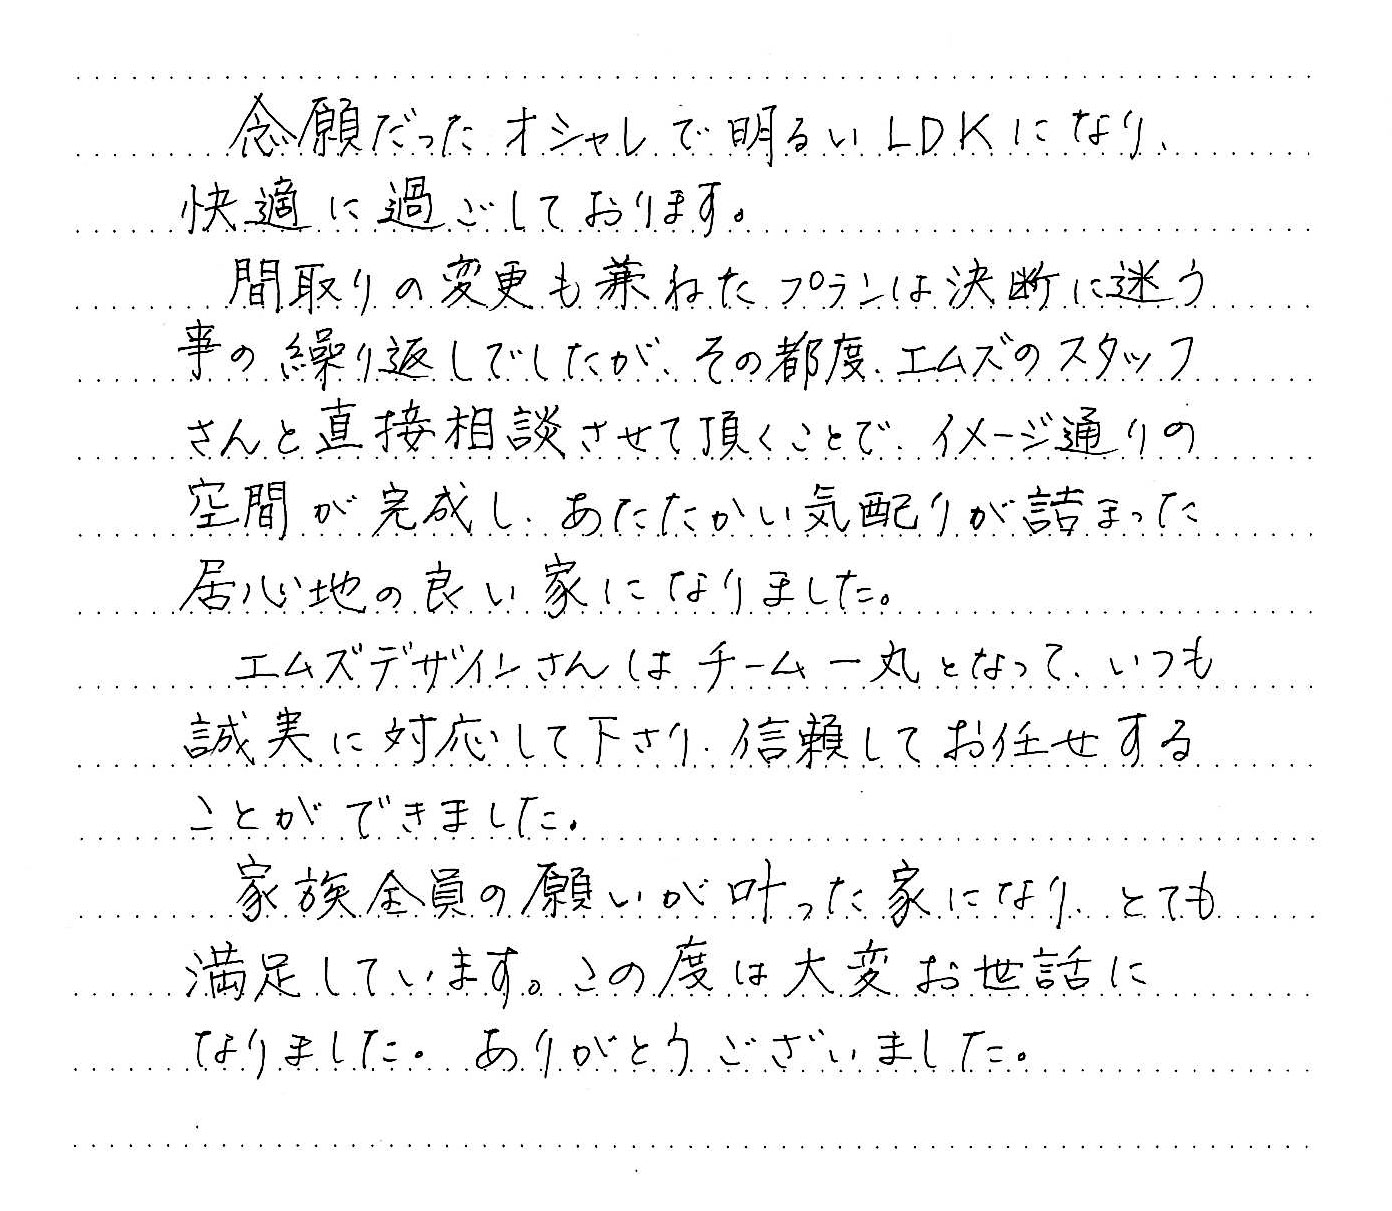 念願だったオシャレで明るいLDKになり、
快適に過ごしております。
間取りの変更も兼ねたプランは決断に迷う
事の繰り返しでしたが、その都度、エムズのスタッフ
さんと直接相談させて頂くことで、イメージ通りの
空間が完成し、あたたかい気配りが詰まった
居心地の良い家になりました。
エムズデザインさんはチーム一丸となって、いつも
誠実に対応して下さり、信頼してお任せする
ことができました。
家族全員の願いが叶った家になり、とても
満足しています。この度は大変お世話に
なりました。ありがとうございました。